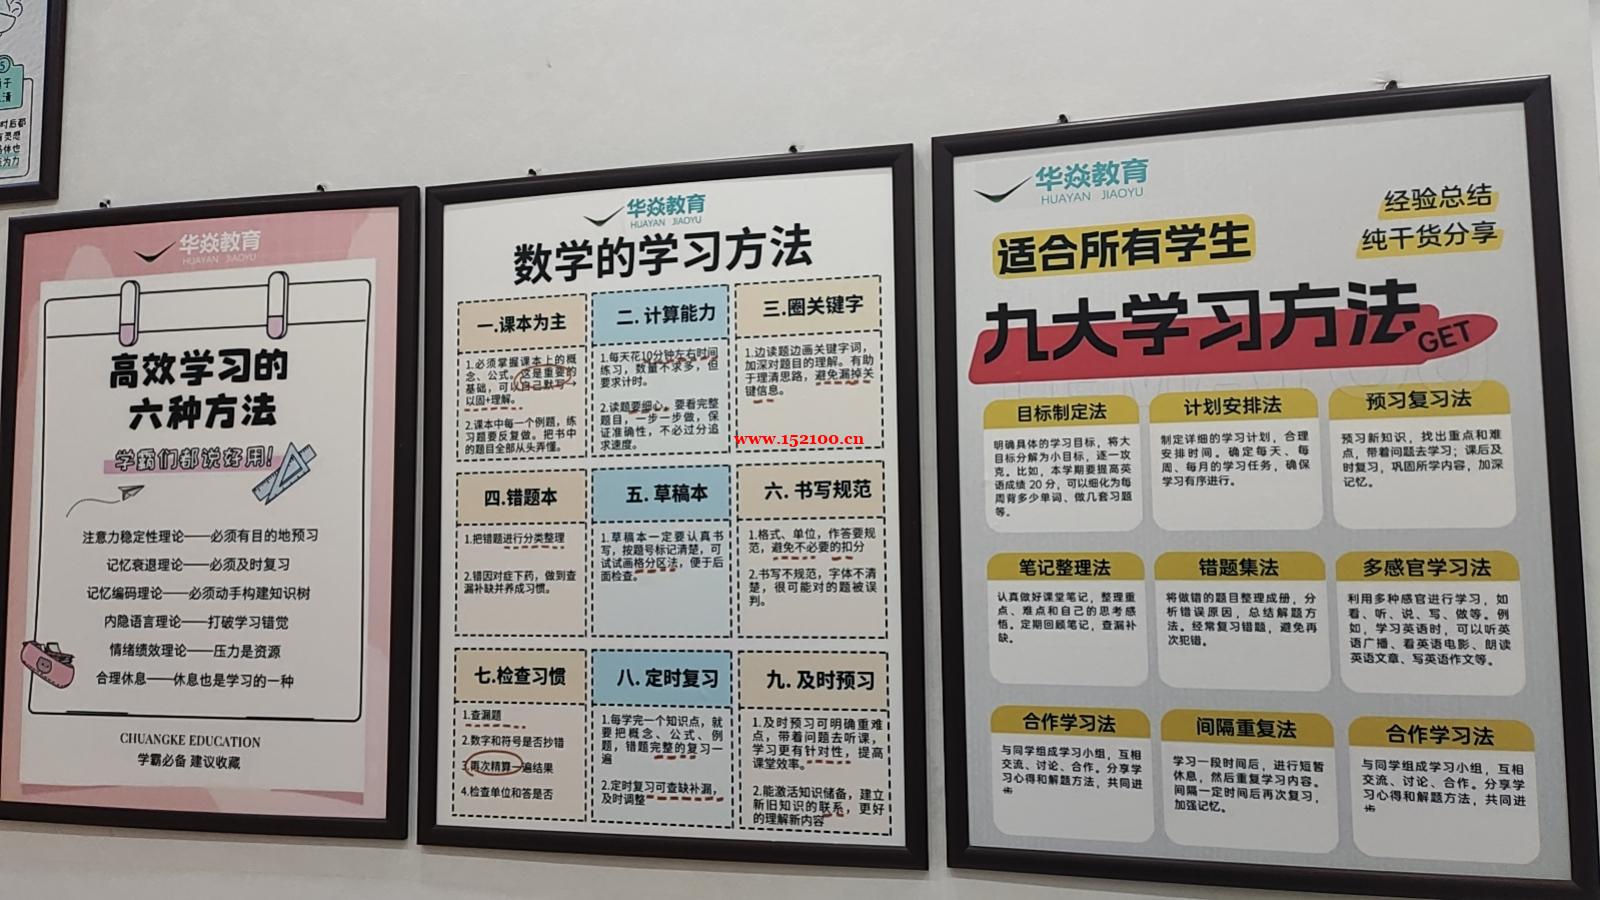 5
时后都
华焱教育
HUAYAN JIAOYU
高效学习的
六种方法
学霸们都说好用!
注意力稳定性理论——必须有目的地预习
记忆衰退理论——必须及时复习
记忆编码理论——必须动手构建知识树
内隐语言理论——打破学习错觉
情绪绩效理论——压力是资源
合理休息——休息也是学习的一种
CHUANGKE EDUCATION
学霸必备 建议收藏
华焱教育
HUAYAN JIAOYU
数学的学习方法
一.课本为主
1.必须掌握课本上的概
念、公式。这是重要的
基础，可以自己默写→
以固+理解。
2.课本中每一个例题，练
习题要反复做。把书中
的题目全部从头弄懂。
二. 计算能力
1.每天花10分钟左右时间
练习，数量不求多，但
要求计时。
2.读题要细心，要看完整
题目，一步一步做，保
证准确性，不必过分追
求速度。
三.圈关键字
1.边读题边画关键字词，
加深对题目的理解。有助
于理清思路，避免漏掉关
键信息。
www.152100.cn
四.错题本
1.把错题进行分类整理
2.错因对症下药，做到查
漏补缺并养成习惯。
五. 草稿本
1.草稿本一定要认真书
写，按题号标记清楚，可
试试画格分区法，便于后
面检查。
六. 书写规范
1.格式、单位，作答要规
范，避免不必要的扣分
2.书写不规范，字体不清
楚，很可能对的题被误
判。
七.检查习惯
1.查漏题
2.数字和符号是否抄错
3.再次精算一遍结果
4.检查单位和答是否
八. 定时复习
1.每学完一个知识点，就
要把概念、公式、例
题，错题完整的复习一
遍
2.定时复习可查缺补漏，
及时调整
九. 及时预习
1.及时预习可明确重难
点，带着问题去听课，
学习更有针对性，提高
课堂效率。
2.能激活知识储备，建立
新旧知识的联系，更好
的理解新内容
华焱教育
HUAYAN JIAOYU
经验总结
纯干货分享
适合所有学生
九大学习方法
GET
目标制定法
明确具体的学习目标，将大
目标分解为小目标，逐一攻
克。比如，本学期要提高英
语成绩 20 分，可以细化为每
周背多少单词、做几套习题
等。
计划安排法
制定详细的学习计划，合理
安排时间。确定每天、每
周、每月的学习任务，确保
学习有序进行。
预习复习法
预习新知识，找出重点和难
点，带着问题去学习；课后及
时复习，巩固所学内容，加深
记忆。
笔记整理法
认真做好课堂笔记，整理重
点、难点和自己的思考感
悟。定期回顾笔记，查漏补
缺。
错题集法
将做错的题目整理成册，分
析错误原因，总结解题方
法。经常复习错题，避免再
次犯错。
多感官学习法
利用多种感官进行学习，如
看、听、说、写、做等。例
如，学习英语时，可以听英
语广播、看英语电影、朗读
英语文章、写英语作文等。
合作学习法
与同学组成学习小组，互相
交流、讨论、合作。分享学
习心得和解题方法，共同进
步
间隔重复法
学习一段时间后，进行短暂
休息，然后重复学习内容。
间隔一定时间后再次复习，
加强记忆。
合作学习法
与同学组成学习小组，互相
交流、讨论、合作。分享学
习心得和解题方法，共同进
步